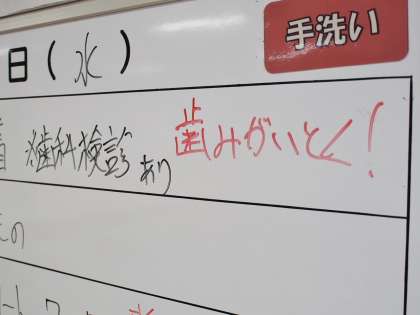 日(水)
手洗い
着 ※歯科検診あり 歯みがいとく!
の